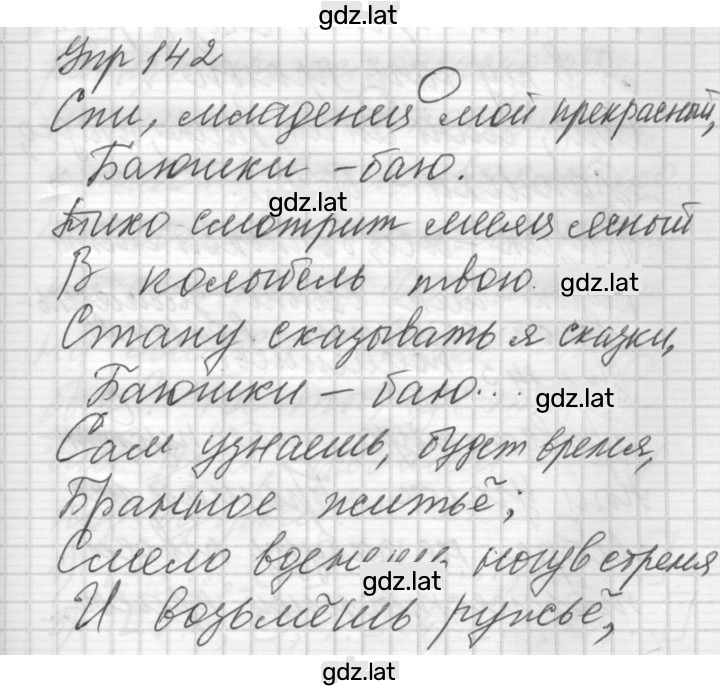 gdz.lat
Упр 142
Спи, младенец мой прекрасный,
Баюшки - баю.
gdz.lat
Тихо смотрит месяц ясный
В колыбель твою.
gdz.lat
Стану сказывать я сказки,
Баюшки - баю...
gdz.lat
Сам узнаешь, будет время,
Бранное житьё;
Смело вденешь ногу в стремя
gdz.lat
И возьмёшь ружьё,
gdz.lat